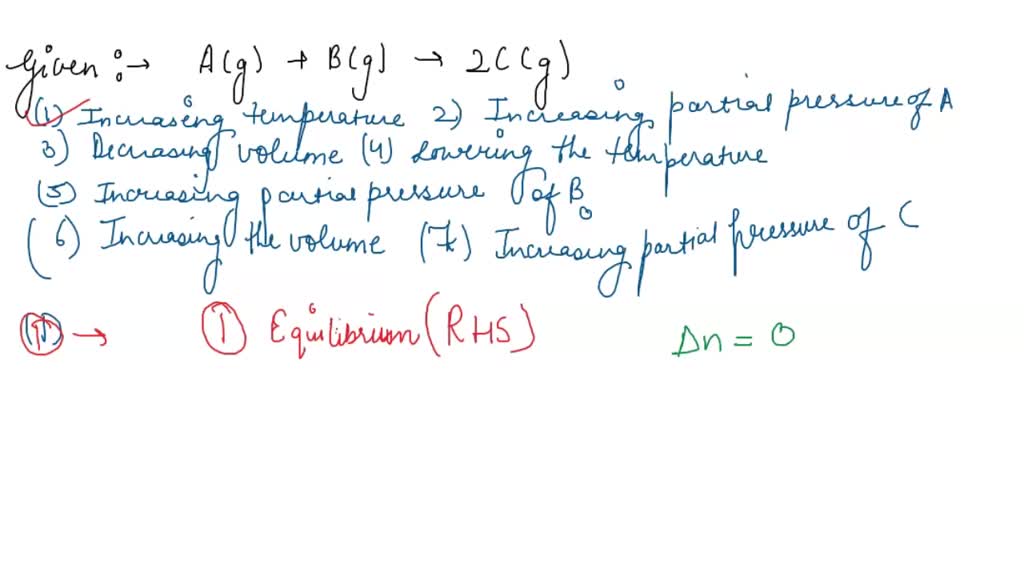 Given :→ A(g) + B(g) → 2C(g)
(1) Increasing temperature 2) Increasing partial pressure of A
3) Decreasing volume (4) Lowering the temperature
(5) Increasing partial pressure of B
(6) Increasing the volume (7) Increasing partial pressure of C
(1) → ① Equilibrium (RHS) Δn = 0